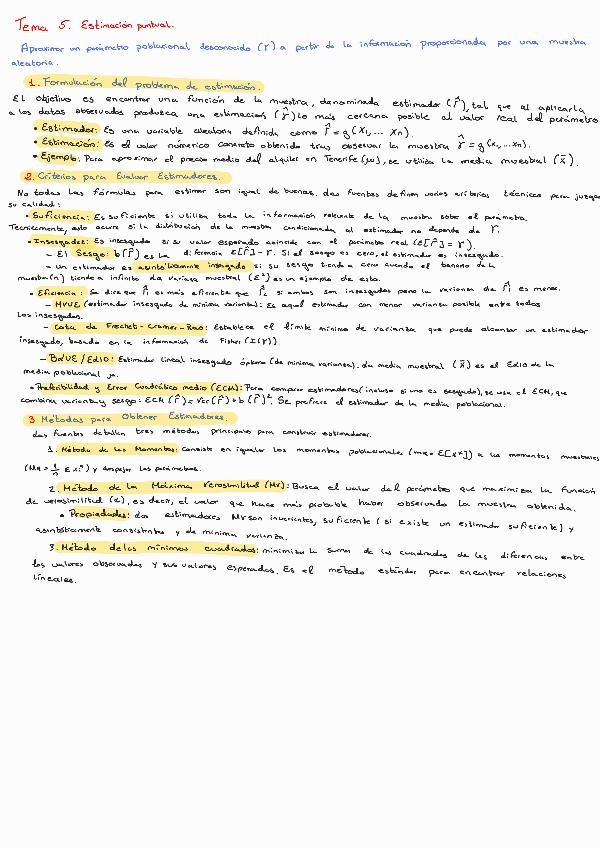 Tema 5. Estimación puntual.
Aproximar un parámetro poblacional desconocido (γ) a partir de la información proporcionada por una muestra
aleatoria.
1. Formulación del problema de estimación.
El objetivo es encontrar una función de la muestra, denominada estimador (Γ̂), tal que al aplicarla
a los datos observados produzca una estimación (γ̂) lo más cercana posible al valor real del parámetro
• Estimador: Es una variable aleatoria definida como Γ̂ = g(X1,... Xn).
• Estimación: Es el valor numérico concreto obtenido tras observar la muestra γ̂ = g(x1,...xn).
• Ejemplo: Para aproximar el precio medio del alquiler en Tenerife (μ), se utiliza la media muestral (x̄).
2. Criterios para Evaluar Estimadores.
No todas las fórmulas para estimar son igual de buenas. Las fuentes definen varios criterios técnicos para juzgar
su calidad:
• Suficiencia: Es suficiente si utiliza toda la información relevante de la muestra sobre el parámetro.
Técnicamente, esto ocurre si la distribución de la muestra condicionada al estimador no depende de γ.
• Insesgadez: Es insesgado si su valor esperado coincide con el parámetro real (E[Γ̂] = γ).
– El Sesgo: b(Γ̂) es la diferencia E[Γ̂] - γ. Si el sesgo es cero, el estimador es insesgado.
– Un estimador es asintóticamente insesgado si su sesgo tiende a cero cuando el tamaño de la
muestra (n) tiende a infinito la varianza muestral (S²) es un ejemplo de esto.
• Eficiencia: Se dice que Γ̂1 es más eficiente que Γ̂2 si ambos son insesgados pero la varianza de Γ̂1 es menor.
– MVUE (estimador insesgado de mínima varianza): Es aquel estimador con menor varianza posible entre todos
los insesgados.
– Cota de Frechet-Cramer-Rao: Establece el límite mínimo de varianza que puede alcanzar un estimador
insesgado, basado en la información de Fisher (I(γ)).
– BLUE / ELIO: Estimador lineal insesgado óptimo (de mínima varianza). La media muestral (X̄) es el ELIO de la
media poblacional μ.
• Preferibilidad y Error Cuadrático medio (ECM): Para comparar estimadores (incluso si uno es sesgado), se usa el ECM, que
combina varianza y sesgo: ECM (Γ̂) = Var(Γ̂) + b(Γ̂)². Se prefiere el estimador de la media poblacional.
3 Métodos para Obtener Estimadores.
Las fuentes detallan tres métodos principales para construir estimadores.
1. Método de los Momentos: Consiste en igualar los momentos poblacionales (mk = E[X^k]) a los momentos muestrales
y despejar los parámetros.
2. Método de la Máxima Verosimilitud (MV): Busca el valor del parámetro que maximiza la función
de verosimilitud (L), es decir, el valor que hace más probable haber observado la muestra obtenida.
• Propiedades: Los estimadores MV son invariantes, suficiente (si existe un estimador suficiente) y
asintóticamente consistentes y de mínima varianza.
3. Método de los mínimos cuadrados: minimiza la suma de los cuadrados de las diferencias entre
los valores observados y sus valores esperados. Es el método estándar para encontrar relaciones
lineales.